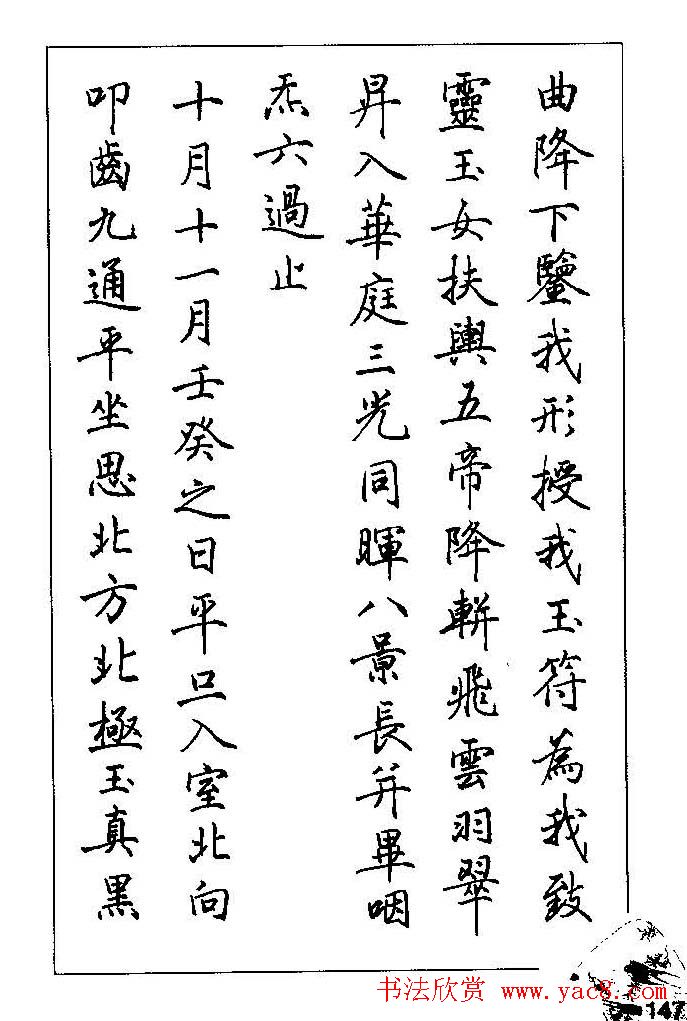 曲降下鑒我形授我玉符為我致
靈玉女扶輿五帝降軿飛雲羽翠
昇入華庭三光同暉八景長并畢咽
炁六過止
十月十一月壬癸之日平旦入室北向
叩齒九通平坐思北方北極玉真黑
书法欣赏 www.yac8.com
147